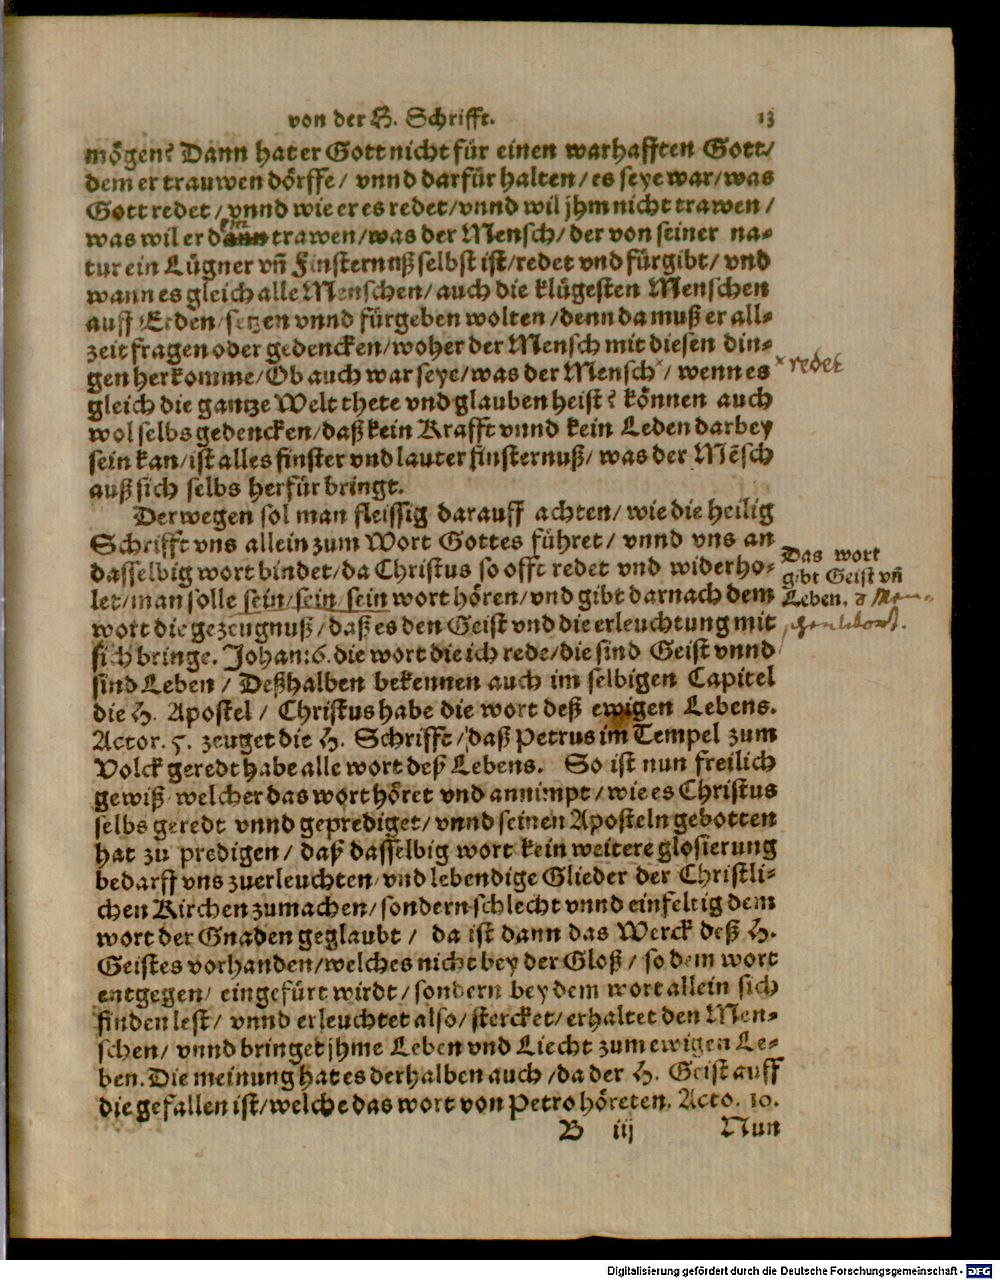 von der H. Schrifft. 13
mögen? Dann hat er Gott nicht für einen warhafften Gott/
dem er trauwen dörffe/ vnnd darfür halten/ es seye war/ was
Gott redet/ vnnd wie er es redet/ vnnd wil jhm nicht trawen/
was wil er trawen/ was der Mensch/ der von seiner na-
tur ein Lügner vñ Finsternuß selbst ist/ redet vnd fürgibt/ vnd
wann es gleich alle Menschen/ auch die klügesten Menschen
auff Erden/ setzen vnnd fürgeben wolten/ denn da muß er all-
zeit fragen oder gedencken/ woher der Mensch mit diesen din-
gen herkomme/ Ob auch war seye/ was der Mensch ˣ/ wenn es
ˣ redet
gleich die gantze Welt thete vnd glauben heist? können auch
wol selbs gedencken/ daß kein Krafft vnnd kein Leden darbey
sein kan/ ist alles finster vnd lauter finsternuß/ was der Mẽsch
auß sich selbs herfür bringt.
Derwegen sol man fleissig darauff achten/ wie die heilig
Schrifft vns allein zum Wort Gottes führet/ vnnd vns an
dasselbig wort bindet/ da Christus so offt redet vnd widerho-
let/ man solle sein/ sein/ sein wort hören/ vnd gibt darnach dem
wort die gezeugnuß/ daß es den Geist vnd die erleuchtung mit
sich bringe. Johan: 6. die wort die ich rede/ die sind Geist vnnd
sind Leben/ Deßhalben bekennen auch im selbigen Capitel
die H. Apostel/ Christus habe die wort deß ewigen Lebens.
Actor. 5. zeuget die H. Schrifft/ daß Petrus im Tempel zum
Volck geredt habe alle wort deß Lebens. So ist nun freilich
gewiß/ welcher das wort höret vnd annimpt/ wie es Christus
selbs geredt vnnd geprediget/ vnnd seinen Aposteln gebotten
hat zu predigen/ daß dasselbig wort kein weitere glosierung
bedarff vns zuerleuchten/ vnd lebendige Glieder der Christli-
chen Kirchen zumachen/ sondern schlecht vnnd einfeltig dem
wort der Gnaden geglaubt/ da ist dann das Werck deß H.
Geistes vorhanden/ welches nicht bey der Gloß/ so dem wort
entgegen/ eingefürt wirdt/ sondern bey dem wort allein sich
finden lest/ vnnd erleuchtet also/ stercket/ erhaltet den Men-
schen/ vnnd bringet jhme Leben vnd Liecht zum ewigen Le-
ben. Die meinung hat es derhalben auch/ da der H. Geist auff
die gefallen ist/ welche das wort von Petro höreten. Acto. 10.
B iij Nun
Das wort
gibt Geist vñ
Leben.
Digitalisierung gefördert durch die Deutsche Forschungsgemeinschaft - DFG